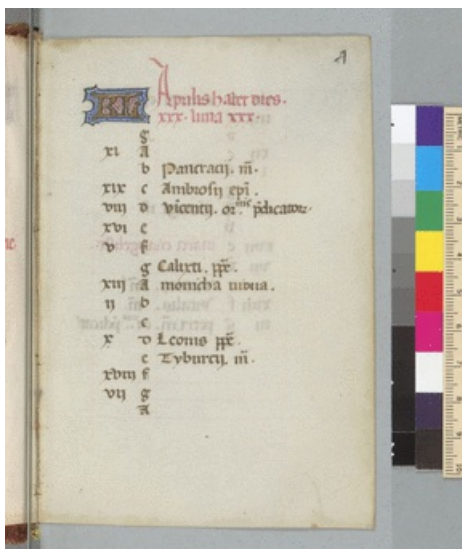 KL Aprilis habet dies.
xxx. luna xxx.
g
xi A
b Pancracij. m̄.
xix c Ambrosij epi.
viii d Vincentij. or̄. p̄dicator
xvi e
v f
g Calixti. pp̄e.
xiii A monicha uidua.
ii b
c
x d Leonis pp̄e.
e Tyburcij. m̄.
xviii f
vii g
A